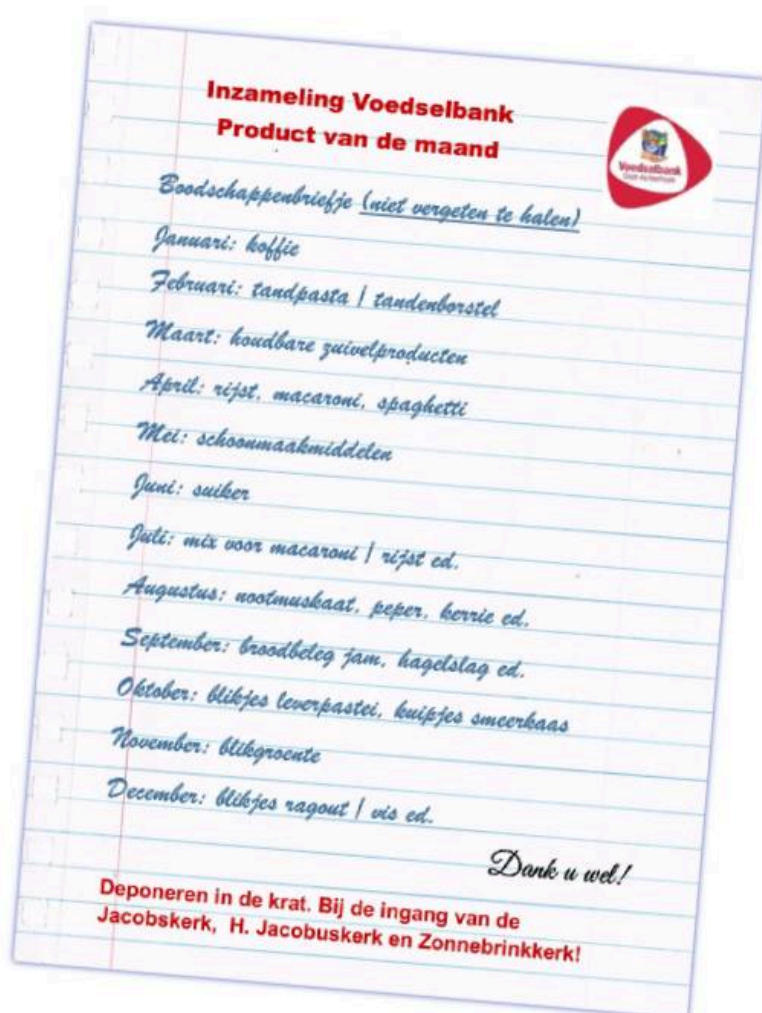 Inzameling Voedselbank
Product van de maand
Voedselbank
Oost-Achterhoek
Boodschappenbriefje (niet vergeten te halen)
Januari: koffie
Februari: tandpasta / tandenborstel
Maart: houdbare zuivelproducten
April: rijst, macaroni, spaghetti
Mei: schoonmaakmiddelen
Juni: suiker
Juli: mix voor macaroni / rijst ed.
Augustus: nootmuskaat, peper, kerrie ed.
September: broodbeleg jam, hagelslag ed.
Oktober: blikjes leverpastei, kuipjes smeerkaas
November: blikgroente
December: blikjes ragout / vis ed.
Dank u wel!
Deponeren in de krat. Bij de ingang van de
Jacobskerk, H. Jacobuskerk en Zonnebrinkkerk!